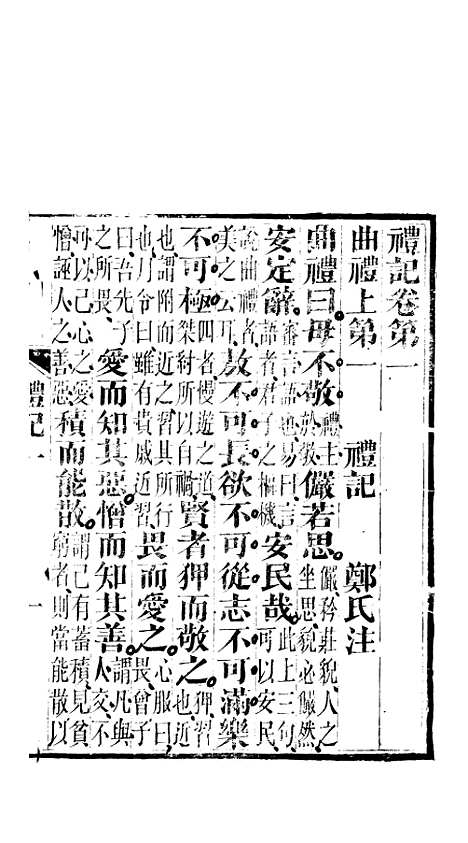 禮記卷第一
曲禮上第一 禮記 鄭氏注
曲禮曰毋不敬禮主於敬儼若思儼矜莊貌人之坐思貌必儼然
安定辭審言語也易曰言語者君子之樞機安民哉此上三句可以安民
說曲禮者美之云耳敖不可長欲不可從志不可滿樂
不可極四者慢遊之道桀紂所以自禍賢者狎而敬之狎習也近
也謂附而近之習其所行也月令曰雖有貴戚近習畏而愛之心服曰畏曾子
曰吾先子之所畏愛而知其惡憎而知其善謂凡與人交不
可以己心之愛憎誣人之善惡積而能散謂己有蓄積見貧窮者則當能散以
禮記一 一